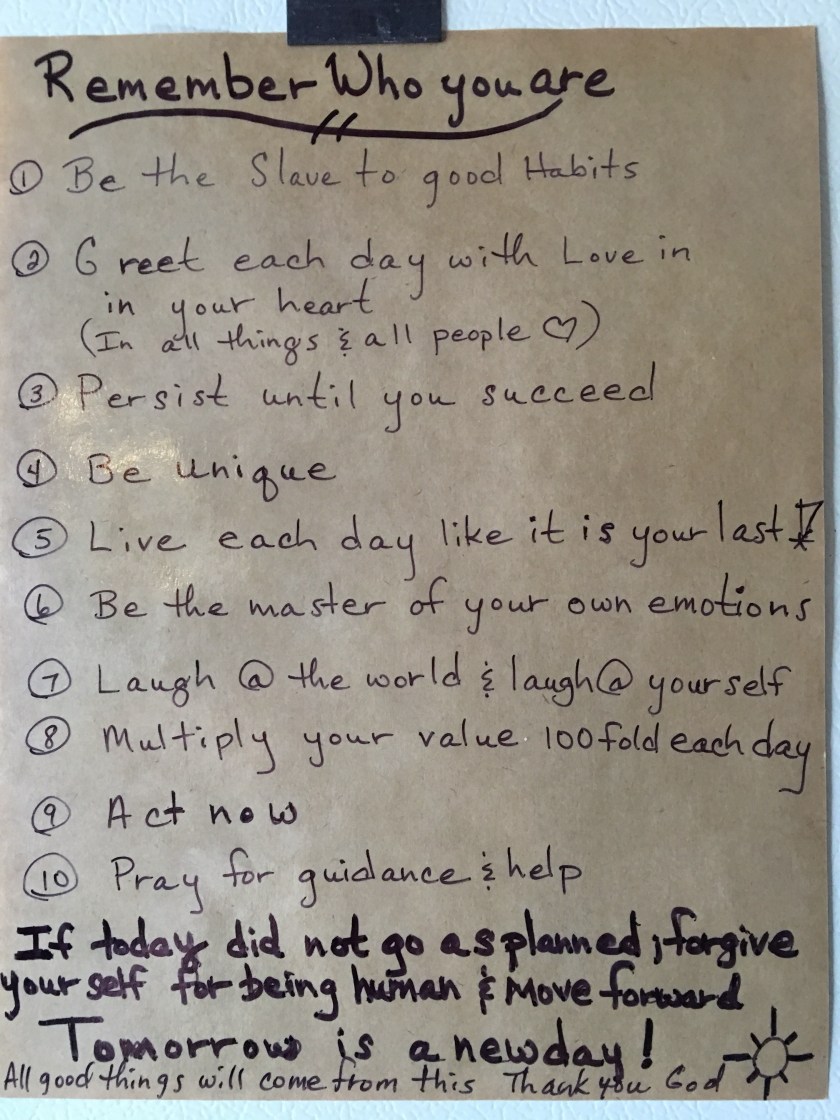 Remember Who you are
① Be the Slave to good Habits
② Greet each day with Love in
in your heart
(In all things & all people ♡)
③ Persist until you succeed
④ Be unique
⑤ Live each day like it is your last!
⑥ Be the master of your own emotions
⑦ Laugh @ the world & laugh @ yourself
⑧ Multiply your value 100 fold each day
⑨ Act now
⑩ Pray for guidance & help
If today did not go as planned; forgive
yourself for being human & Move forward
Tomorrow is a new day!
All good things will come from this Thank you God